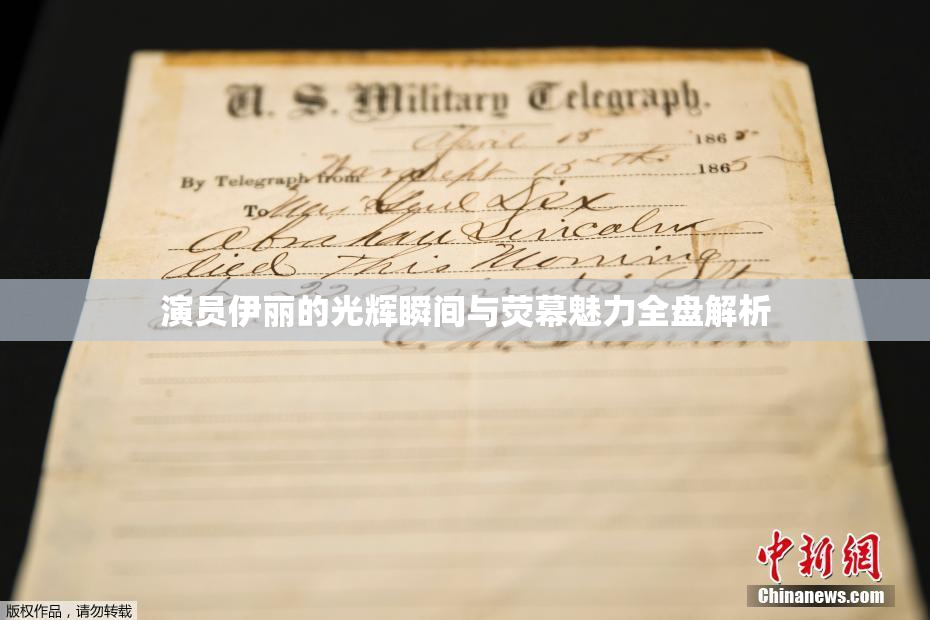 U. S. Military Telegraph.
April 15 1865
By Telegraph from War Dept 15th 1865
To Maj Genl Dix
Abraham Lincoln
died This Morning
at 22 minutes after
演员伊丽的光辉瞬间与荧幕魅力全盘解析
E. M. Stanton
中新网
Chinanews.com
版权作品，请勿转载